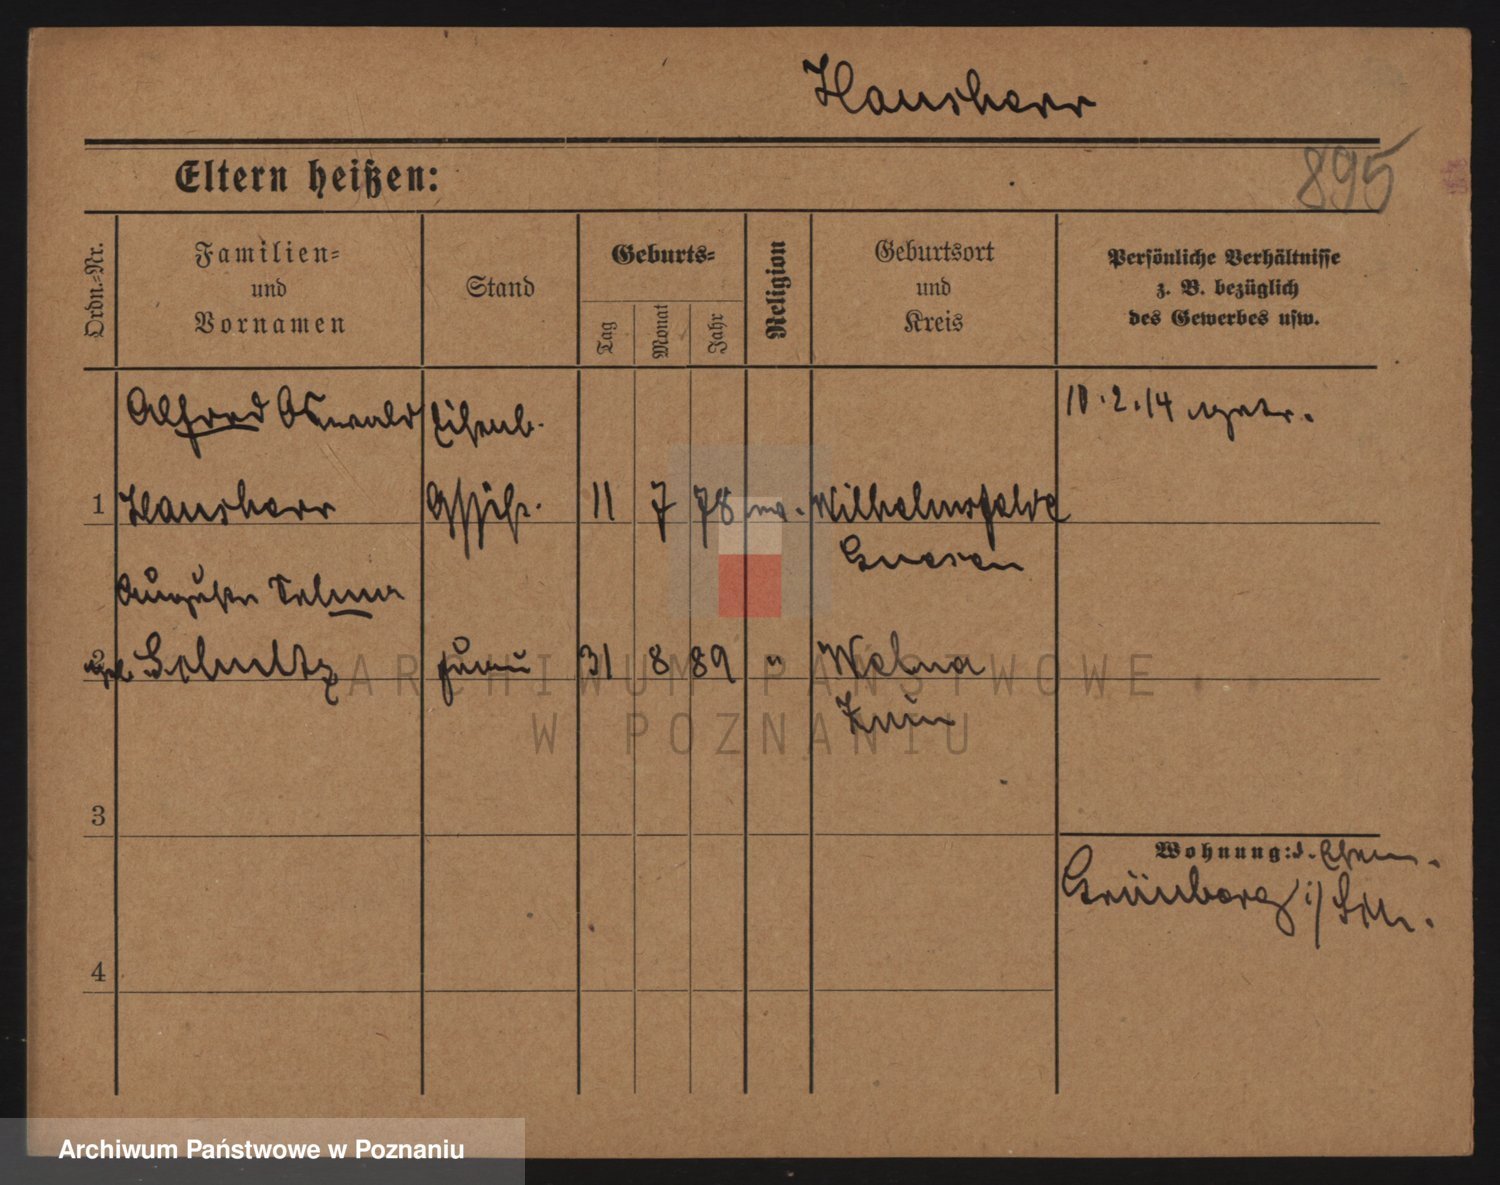 Hausherr
895
Eltern heißen:
Ordn.-Nr.
Familien-
und
Vornamen
Stand
Geburts-
Tag
Monat
Jahr
Religion
Geburtsort
und
Kreis
Persönliche Verhältnisse
z. B. bezüglich
des Gewerbes usw.
Alfred Oswald Eisenb. 10.2.14
1 Hausherr 11 7 78 Wilhelmsfelde
Gnesen
Auguste Selma
2 geb. Schultz Frau 31 8 89 " Welna
Znin
3
Wohnung:
Grünberg i/ Schl.
4
ARCHIWUM PAŃSTWOWE
W POZNANIU
Archiwum Państwowe w Poznaniu